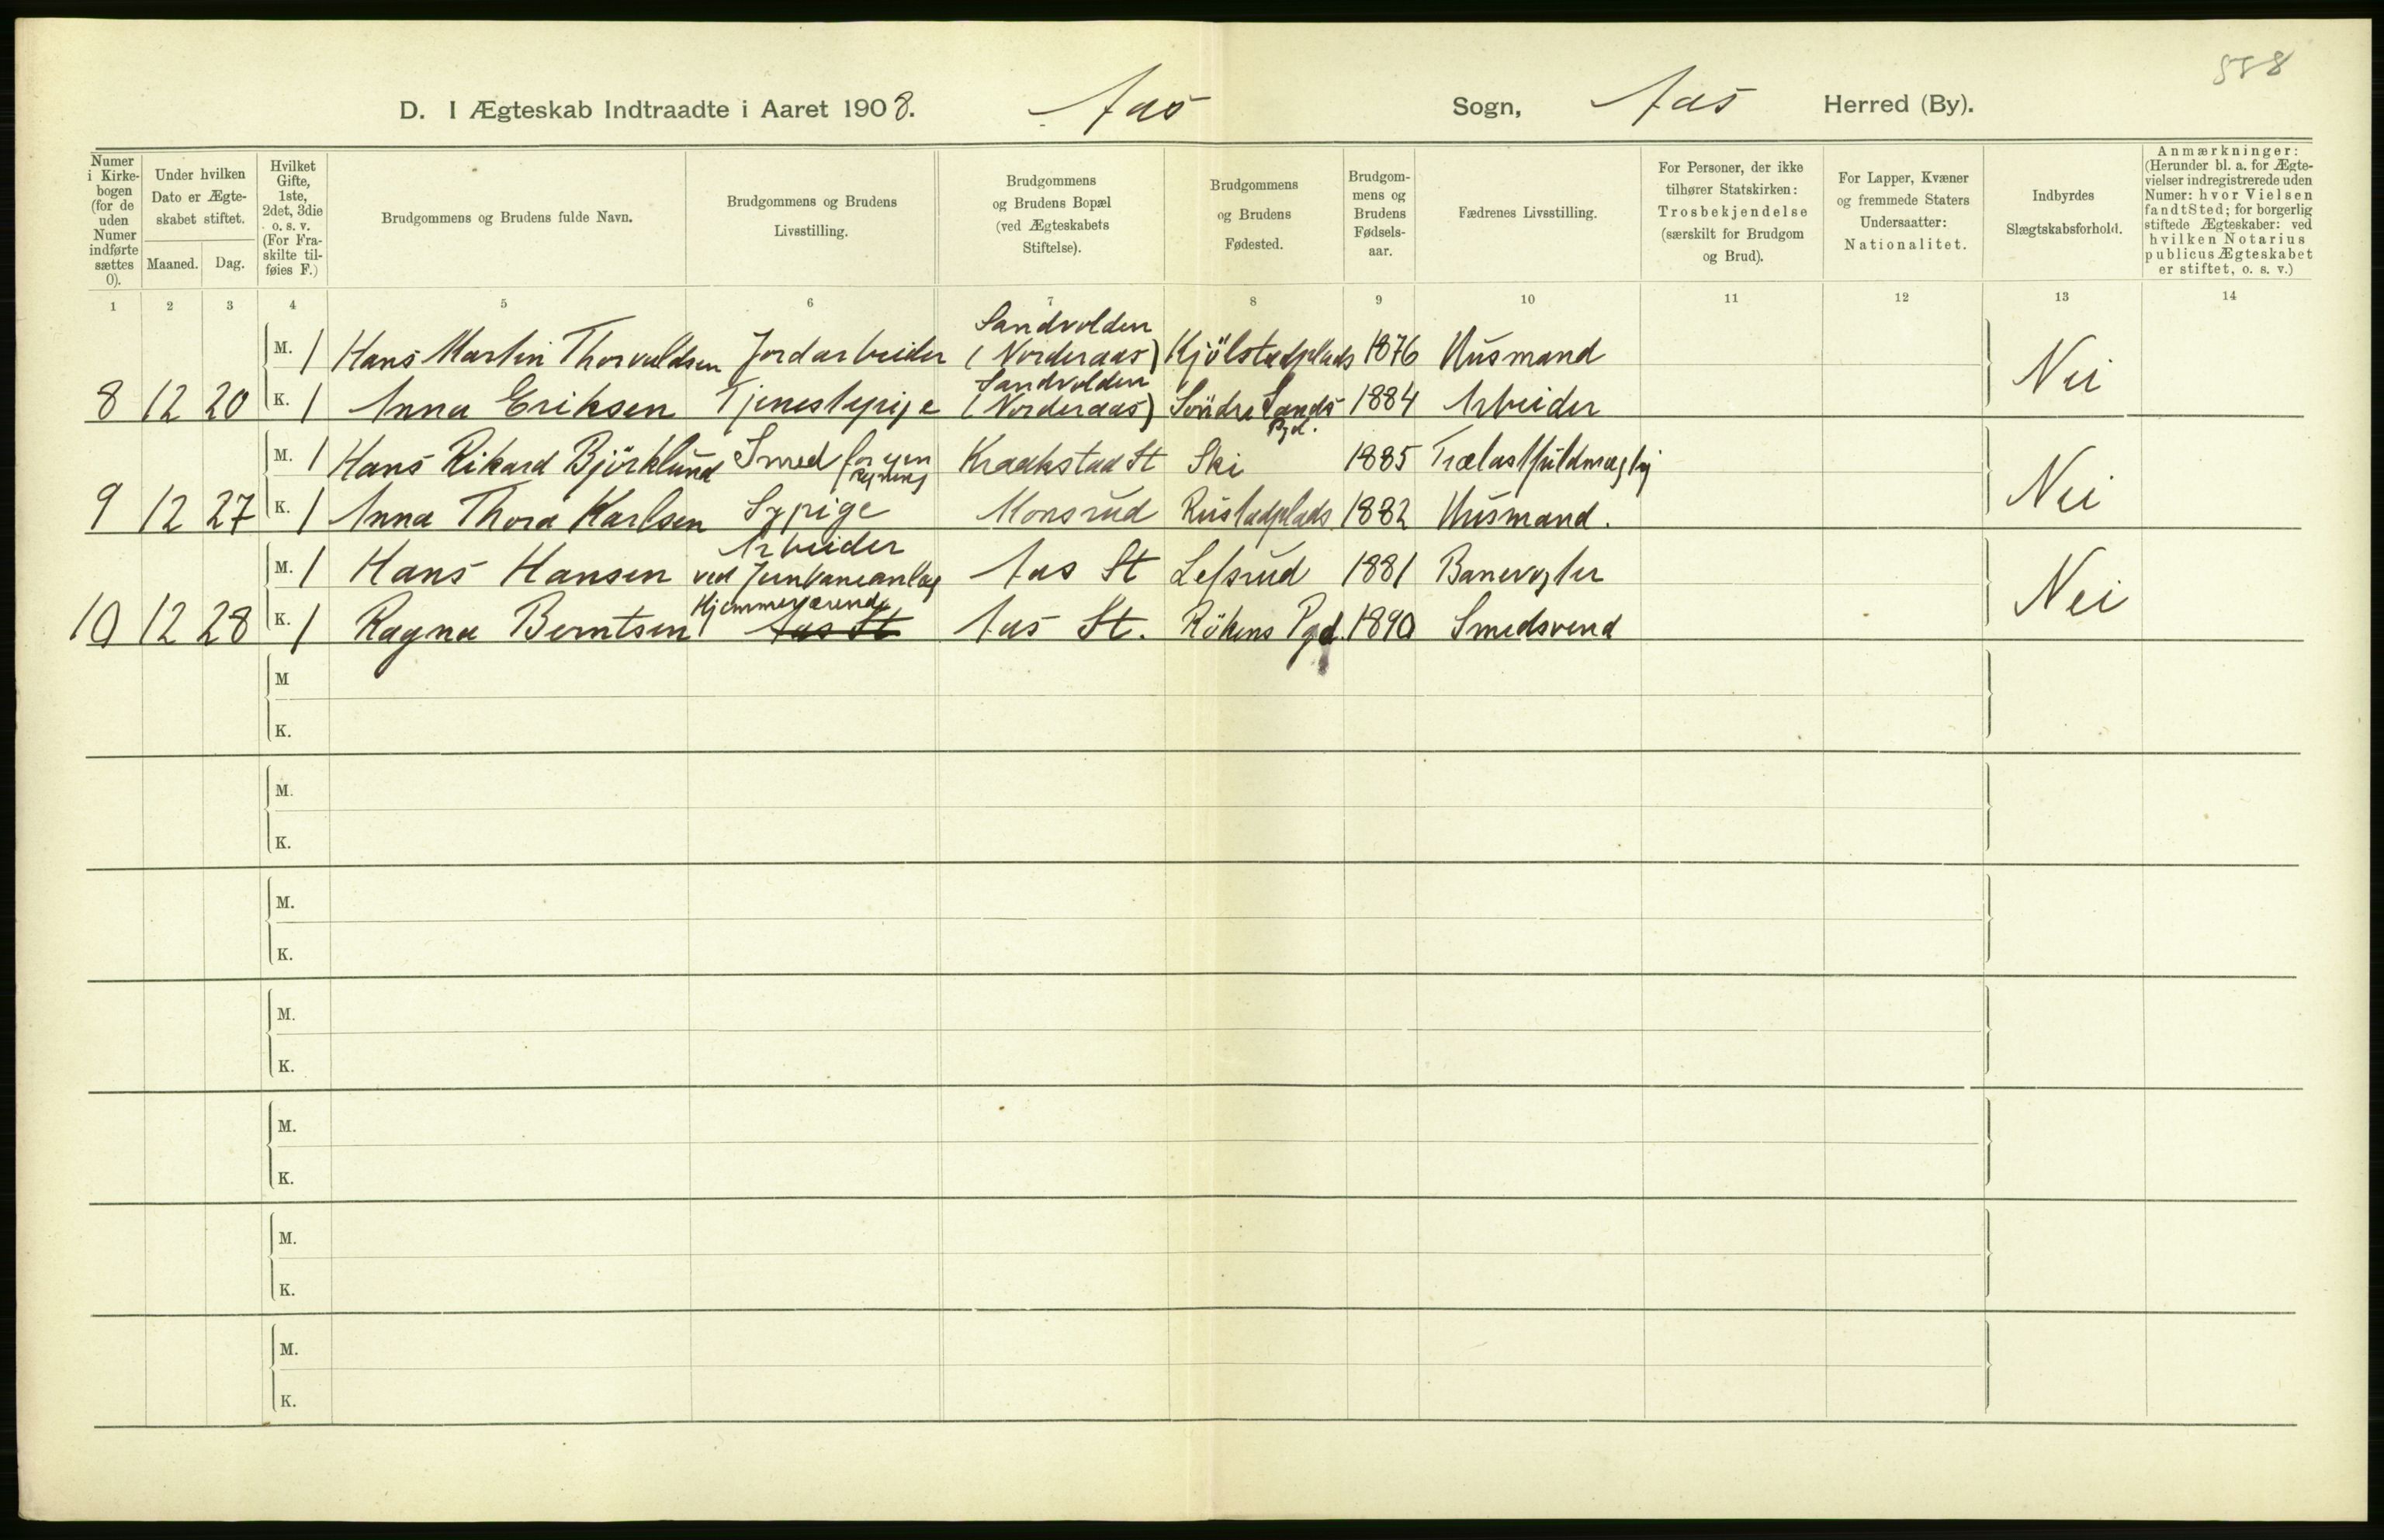 558
D. I Ægteskab Indtraadte i Aaret 1908. Aas Sogn, Aas Herred (By).
Numer i Kirke-bogen (for de uden Numer indførte sættes 0).
Under hvilken Dato er Ægte-skabet stiftet.
Maaned. Dag.
Hvilket Gifte, 1ste, 2det, 3die o. s. v. (For Fra-skilte til-føies F.)
Brudgommens og Brudens fulde Navn.
Brudgommens og Brudens Livsstilling.
Brudgommens og Brudens Bopæl (ved Ægteskabets Stiftelse).
Brudgommens og Brudens Fødested.
Brudgom-mens og Brudens Fødsels-aar.
Fædrenes Livsstilling.
For Personer, der ikke tilhører Statskirken: Trosbekjendelse (særskilt for Brudgom og Brud).
For Lapper, Kvæner og fremmede Staters Undersaatter: Nationalitet.
Indbyrdes Slægtskabsforhold.
Anmærkninger: (Herunder bl. a. for Ægte-vielser indregistrerede uden Numer: hvor Vielsen fandt Sted; for borgerlig stiftede Ægteskaber: ved hvilken Notarius publicus Ægteskabet er stiftet, o. s. v.)
1 2 3 4 5 6 7 8 9 10 11 12 13 14
M. 1 Hans Martin Thorvaldsen Jordarbeider Sandvolden (Norderaas) Kjölstadplads 1876 Husmand Nei
8 12 20 K. 1 Anna Eriksen Tjenestepige Sandvolden (Norderaas) Söndre Lands Pgd. 1884 Arbeider
M. 1 Hans Rikard Björklund Smed for egen Regning Kraakstad St Ski 1885 Trælastfuldmægtig Nei
9 12 27 K. 1 Anna Thora Karlsen Sypige Monsrud Rustadplads 1882 Husmand.
M. 1 Hans Hansen Arbeider ved Jernbaneanlæg Aas St Lefsrud 1881 Banevogter Nei
10 12 28 K. 1 Ragna Berntsen Hjemmeværende Aas St Aas St. Rökens Pgd. 1890 Smedsvend
M
K.
M.
K.
M.
K.
M.
K.
M.
K.
M.
K.
M.
K.